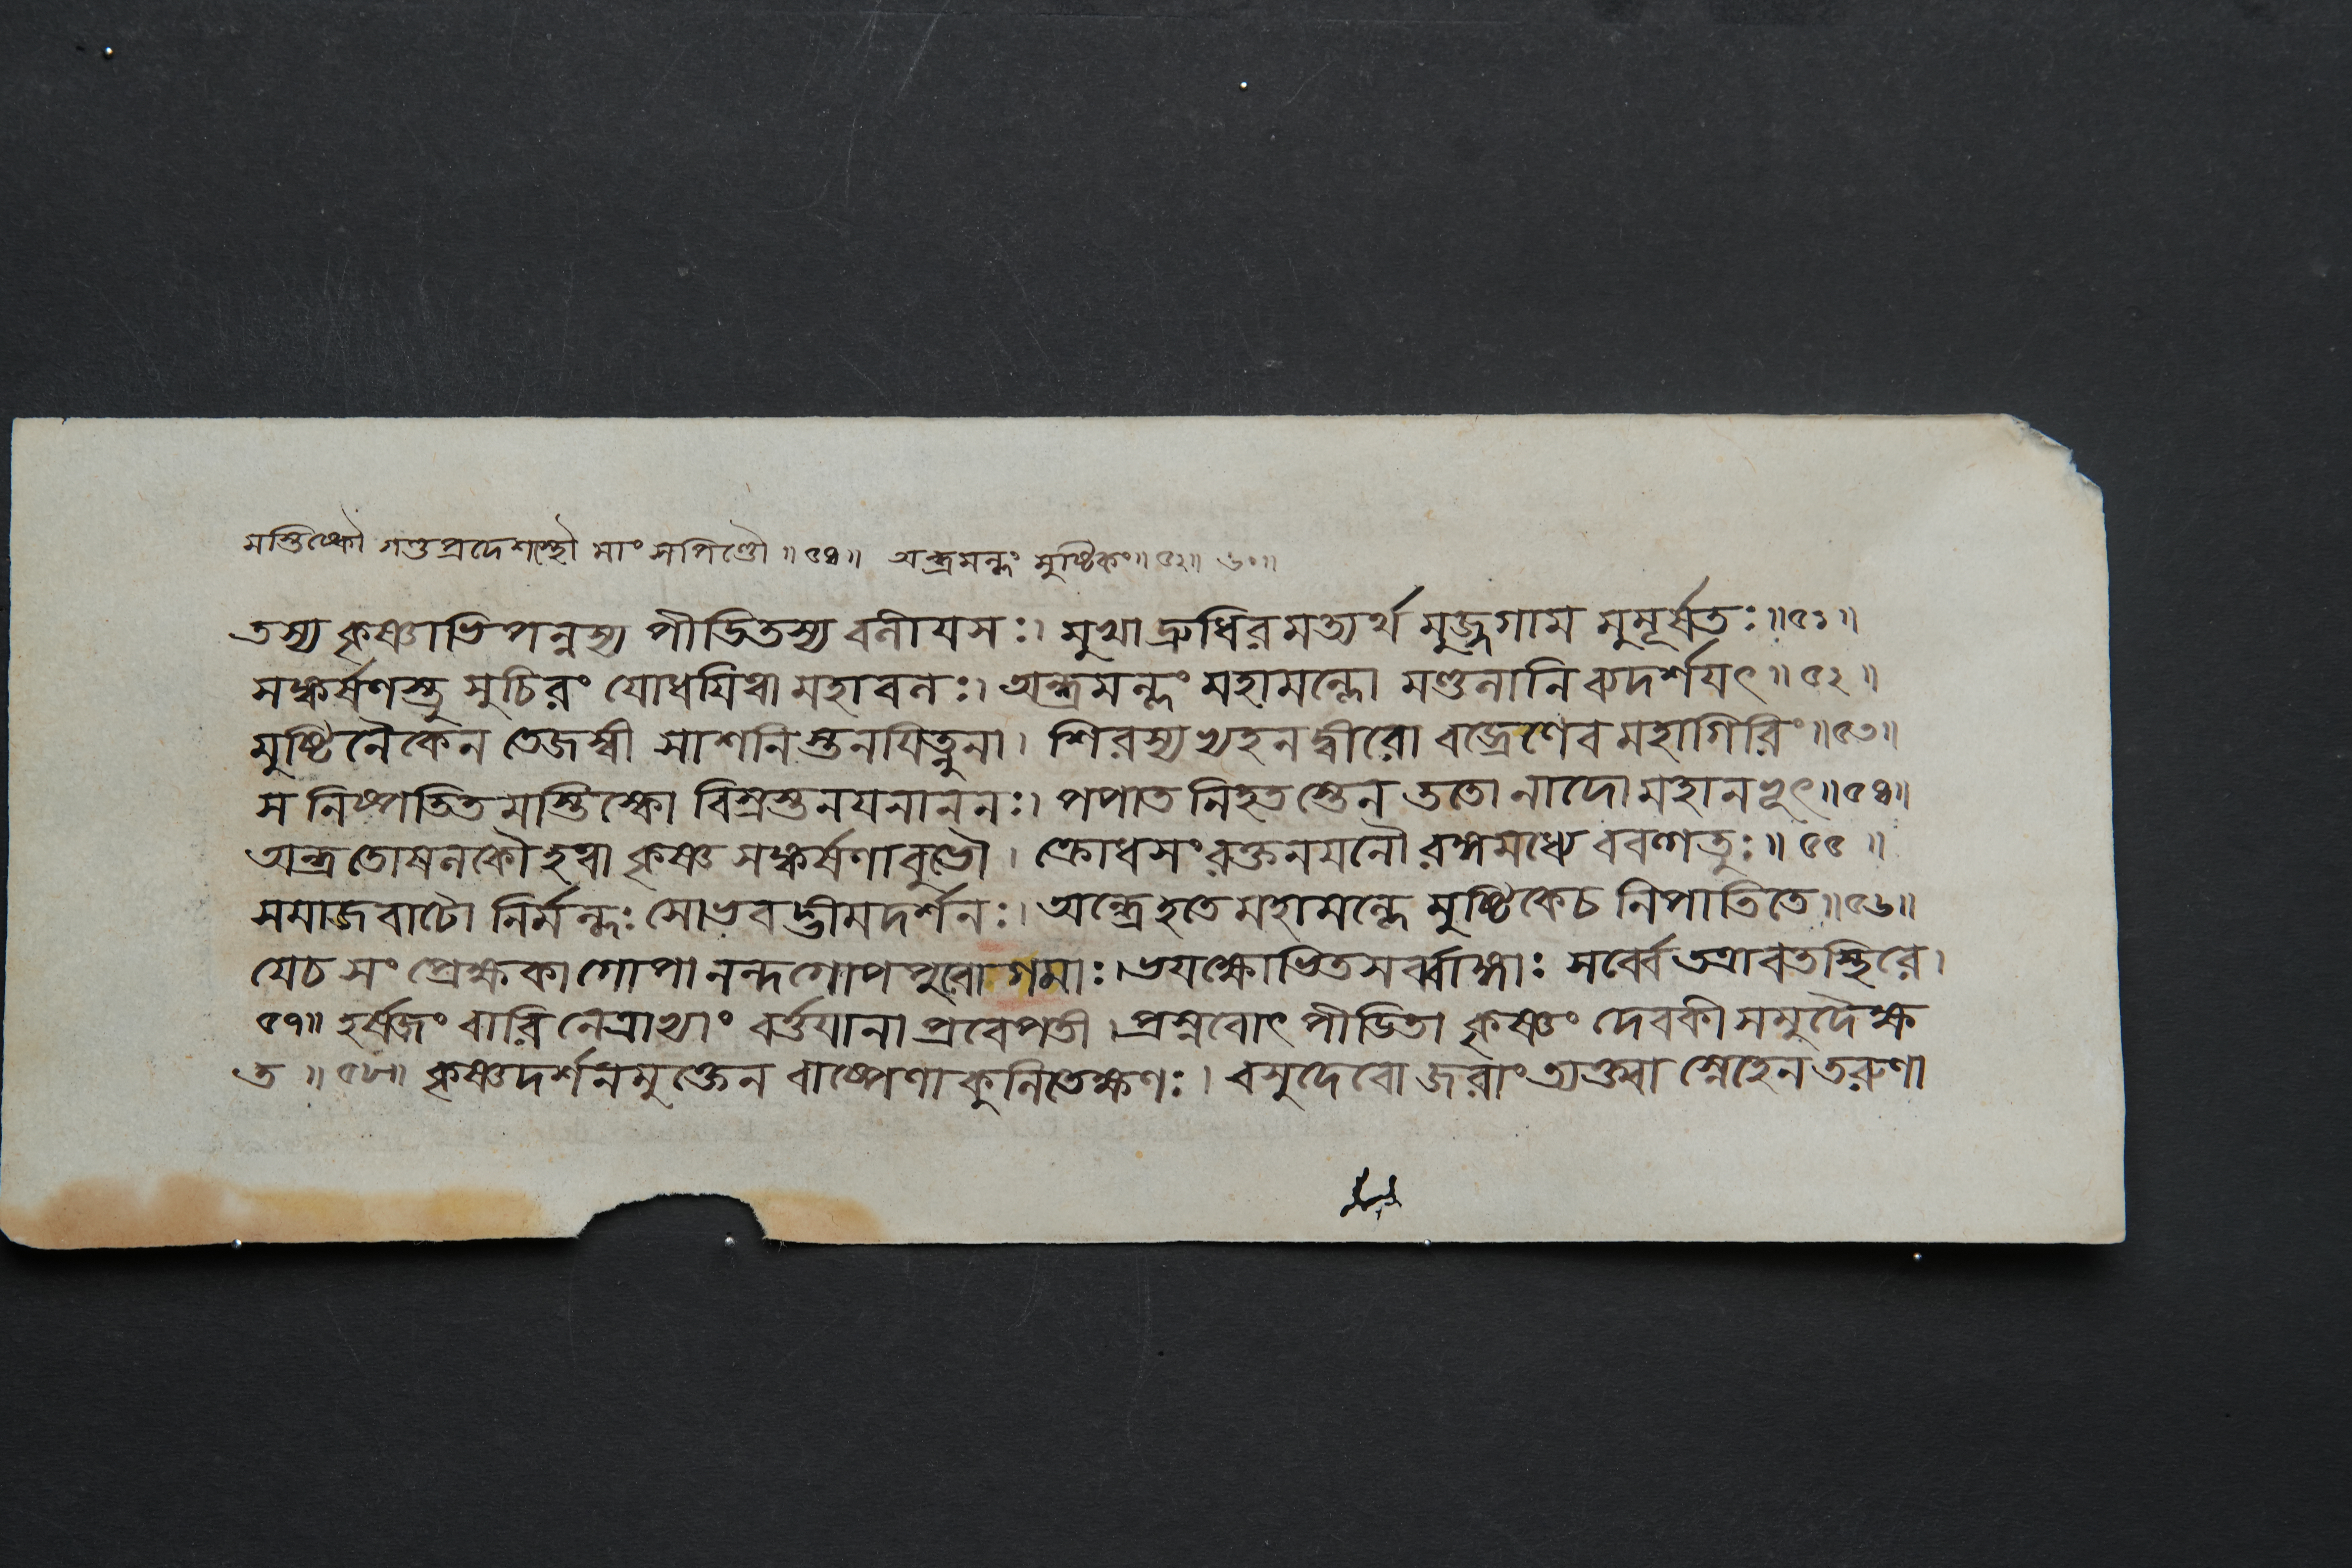 মস্তিষ্কৌ গণ্ডপ্রদেশস্থৌ মাংসপিণ্ডৌ ॥৫৪॥ অন্ধ্রমল্লং মুষ্টিকং॥৫২॥ ৬০॥
তস্য কৃষ্ণাভিপন্নস্য পীডিতস্য বলীযসঃ। মুখাদ্রুধিরমত্যর্থমুজ্জগাম মুমূর্ষতঃ॥৫১॥
সঙ্কর্ষণস্তু সুচিরং যোধযিত্বা মহাবলঃ। অন্ধ্রমল্লং মহামল্লো মণ্ডলানি ব্যদর্শযৎ॥৫২॥
মুষ্টিনৈকেন তেজস্বী সাশনিস্তনযিত্নুনা। শিরস্যভ্যহনদ্বীরো বজ্রেণেব মহাগিরিং॥৫৩॥
স নিষ্পতিতমস্তিষ্কো বিস্রস্তনযনাননঃ। পপাত নিহতস্তেন ততো নাদো মহানভূৎ॥৫৪॥
অন্ধ্রতোষলকৌ হত্বা কৃষ্ণসঙ্কর্ষণাবুভৌ। ক্রোধসংরক্তনযনৌ রঙ্গমধ্যে ববল্গতুঃ॥৫৫॥
সমাজবাটো নির্মল্লঃ সোভবদ্ভীমদর্শনঃ। অন্ধ্রে হতে মহামল্লে মুষ্টিকে চ নিপাতিতে॥৫৬॥
যে চ সংপ্রেক্ষকা গোপা নন্দগোপপুরোগমাঃ। ভযক্ষোভিতসর্ব্বাঙ্গাঃ সর্ব্বে তত্রাবতস্থিরে।
৫৭॥ হর্ষজং বারি নেত্রাভ্যাং বর্ত্তযানা প্রবেপতী। প্রস্নবোৎপীডিতা কৃষ্ণং দেবকী সমুদৈক্ষ
ত ॥৫৮॥ কৃষ্ণদর্শনমুক্তেন বাষ্পেণাকুলিতেক্ষণঃ। বসুদেবো জরাং ত্যক্ত্বা স্নেহেন তরুণা